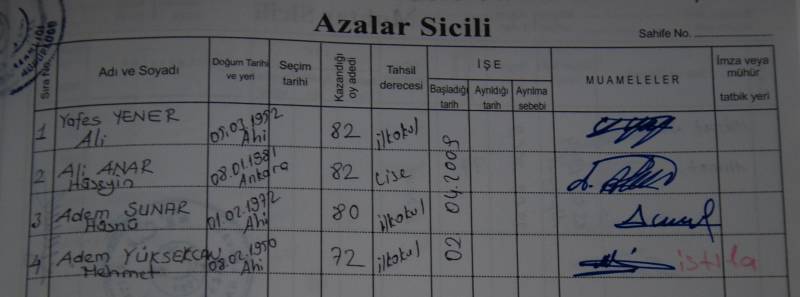 Azalar Sicili
Sahife No.
Sıra No.
Adı ve Soyadı
Doğum Tarihi ve yeri
Seçim tarihi
Kazandığı oy adedi
Tahsil derecesi
İŞE
Başladığı tarih
Ayrıldığı tarih
Ayrılma sebebi
MUAMELELER
İmza veya mühür
tatbik yeri
1 Yafes YENER 05.03.1952 82 ilkokul
Ali Ahi
2 Ali ANAR 08.01.1981 82 Lise
Hüseyin Ankara
3 Adem SUNAR 01.02.1972 80 ilkokul
Hüsnü Ahi
4 Adem YÜKSEKCAN 08.02.1950 72 ilkokul istifa
Mehmet Ahi
02 04.2009